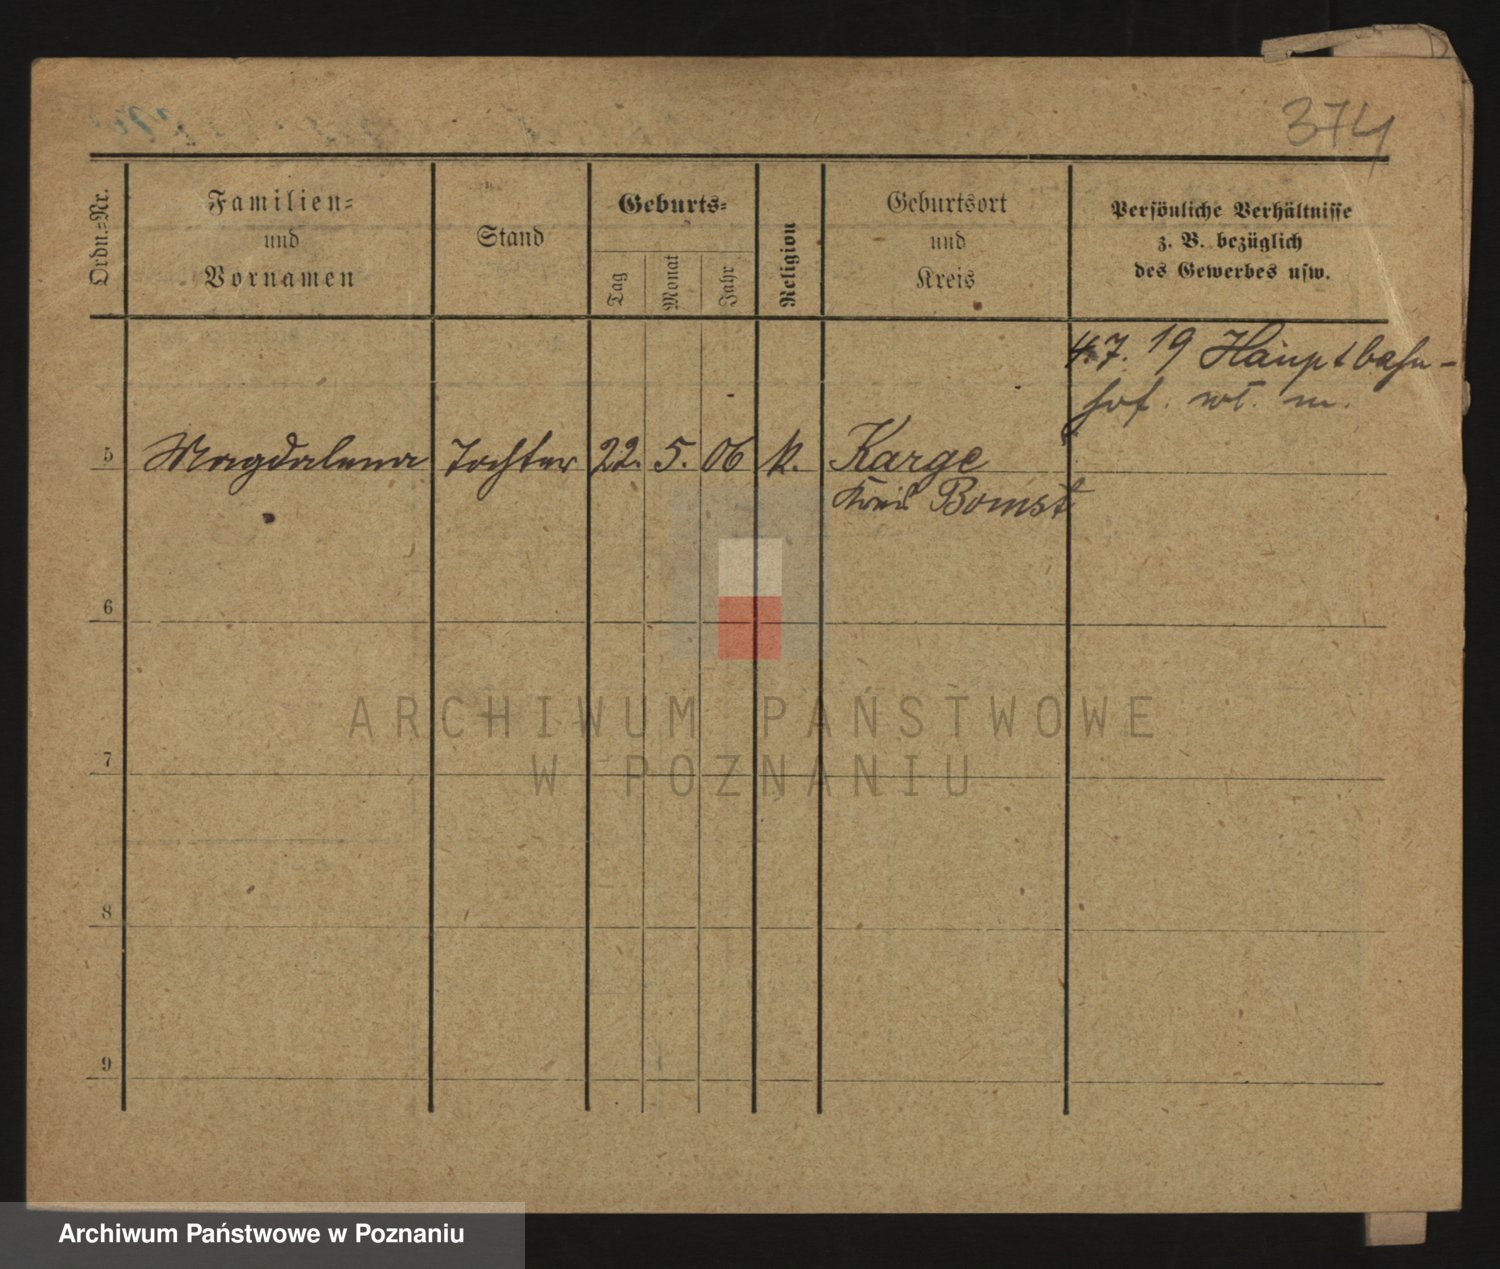 374
Ordn.-Nr.
Familien-
und
Vornamen
Stand
Geburts-
Tag
Monat
Jahr
Religion
Geburtsort
und
Kreis
Persönliche Verhältnisse
z. B. bezüglich
des Gewerbes usw.
4.7.19 Hauptbahn-
hof. wt. m.
5 Magdalena Tochter 22. 5. 06 k. Karge
Kreis Bomst
6
7
8
9
ARCHIWUM PAŃSTWOWE
W POZNANIU
Archiwum Państwowe w Poznaniu